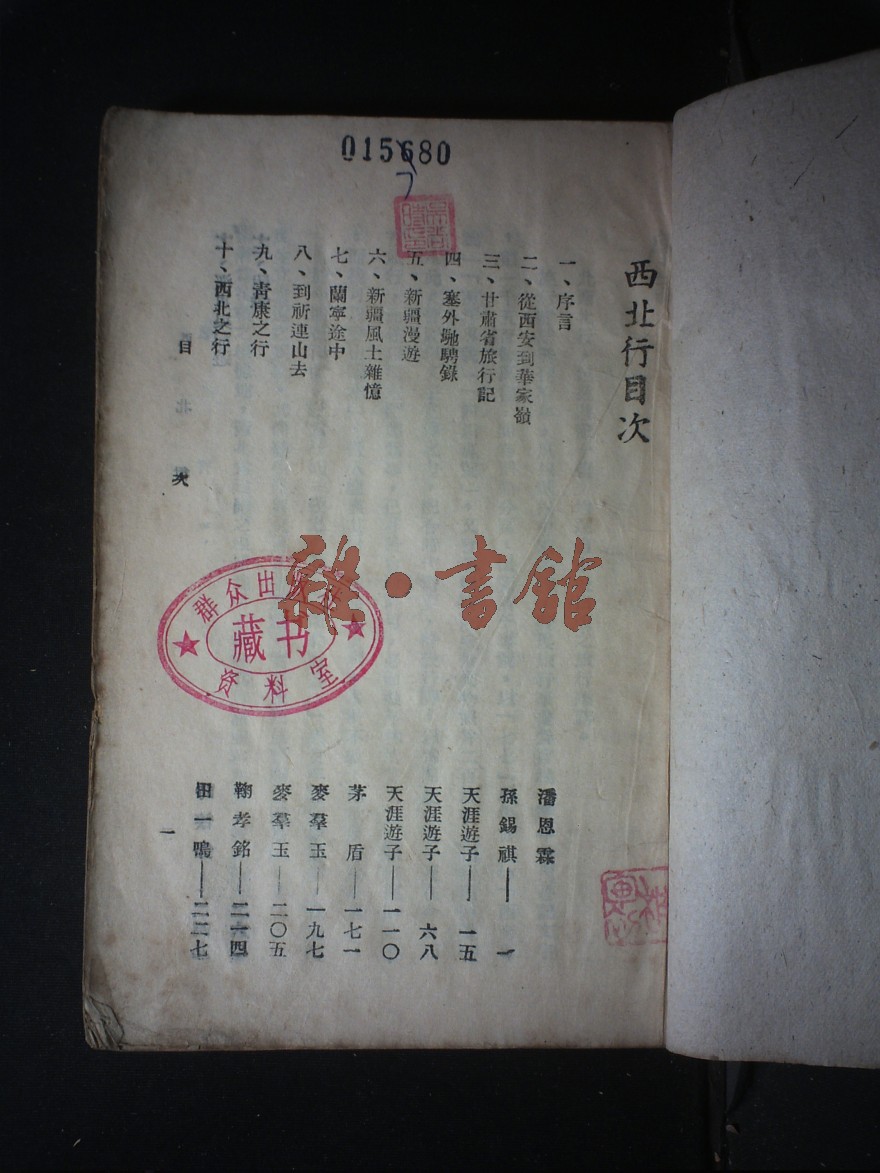 015680
西北行目次
一、序言 潘恩霖
二、從西安到華家嶺 孫錫祺——一
三、甘肅省旅行記 天涯遊子——一五
四、塞外馳騁錄 天涯遊子——六八
五、新疆漫遊 天涯遊子——一一〇
六、新疆風土雜憶 茅盾——一七一
七、蘭寧途中 麥羣玉——一九七
八、到祈連山去 麥羣玉——二〇五
九、青康之行 鞠孝銘——二一四
十、西北之行 田一鳴——二二七
目 次
一
群众出版社
藏书
资料室
雜·書館